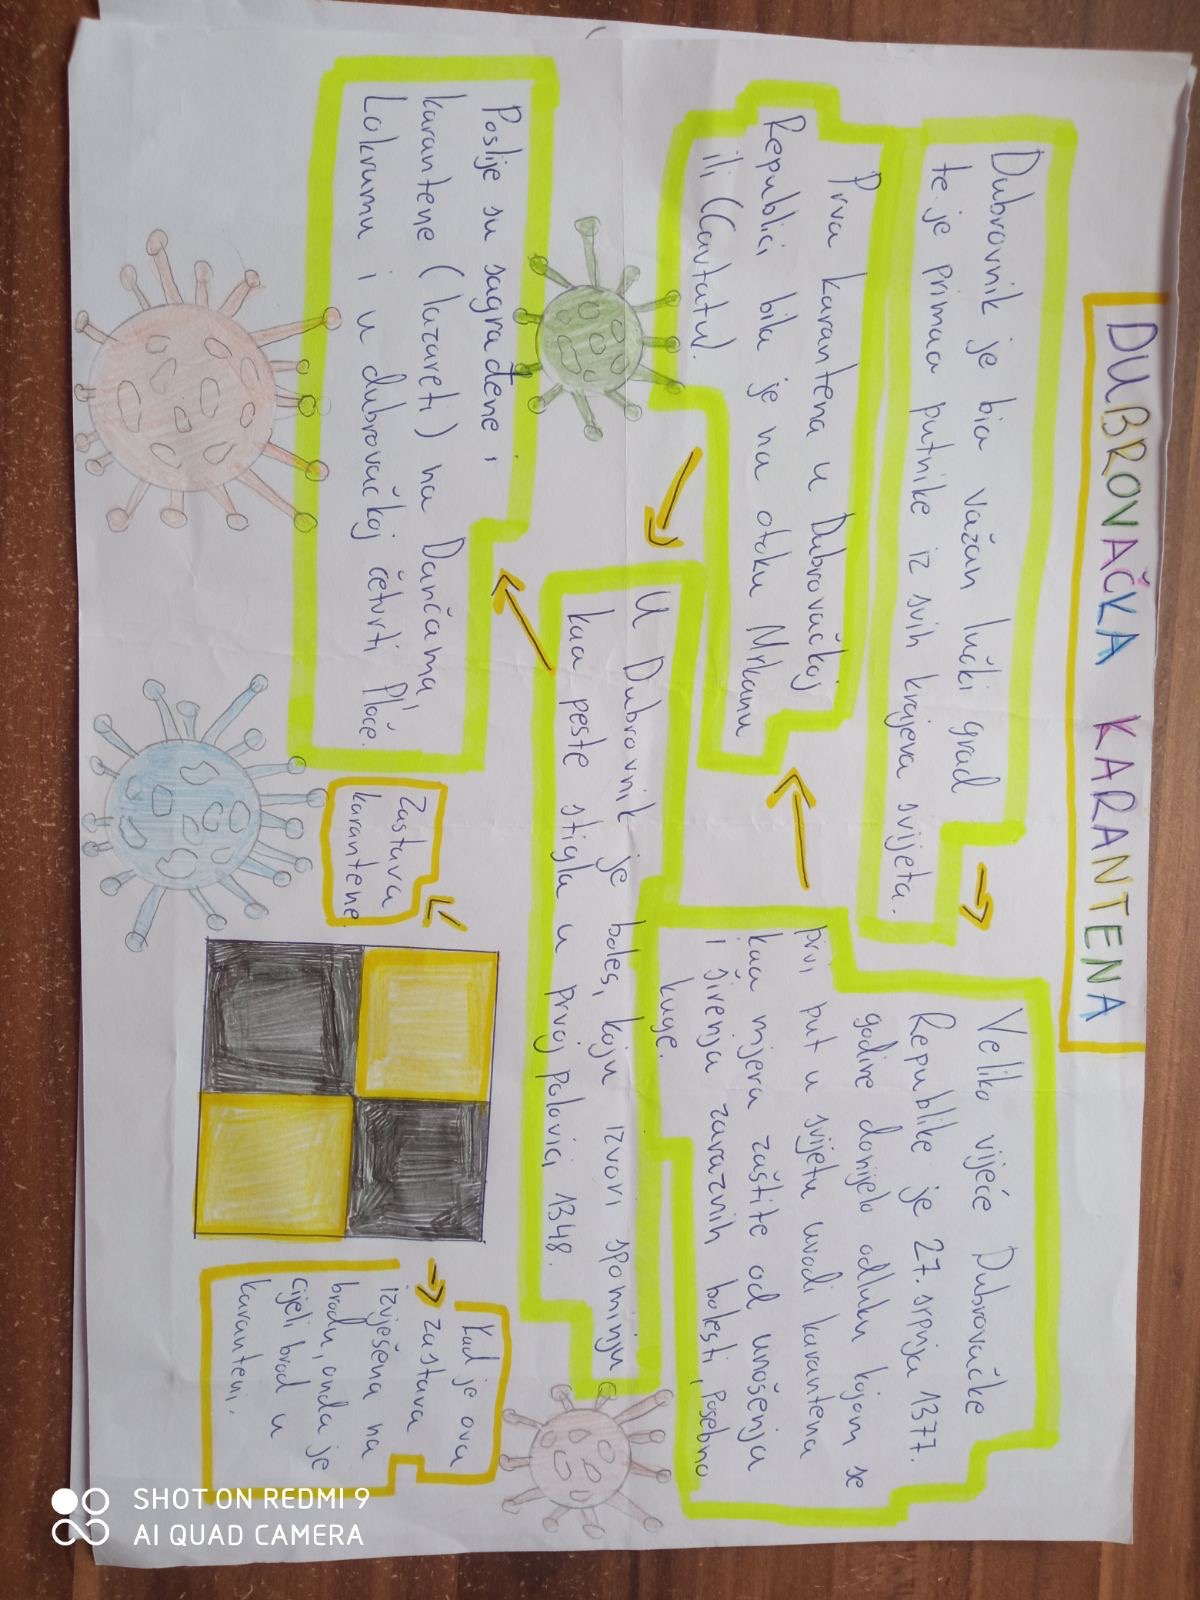 DUBROVAČKA KARANTENA
Dubrovnik je bio važan lučki grad
te je primao putnike iz svih krajeva svijeta.
Veliko vijeće Dubrovačke
Republike je 27. srpnja 1377.
godine donijelo odluku kojom se
prvi put u svijetu uvodi karantena
kao mjera zaštite od unošenja
i širenja zaraznih bolesti, posebno
kuge.
Prva karantena u Dubrovačkoj
Republici bila je na otoku Mrkanu
ili (Cavtatu).
U Dubrovnik je boles, koju izvori spominju
kao peste stigla u prvoj polovici 1348.
Poslije su sagrađene i
karantene (lazareti) na Dančama
Lokrumu i u dubrovačkoj četvrti Ploče.
Zastava
karantene
Kad je ova
zastava
izvješena na
brodu, onda je
cijeli brod u
karanteni.
SHOT ON REDMI 9
AI QUAD CAMERA